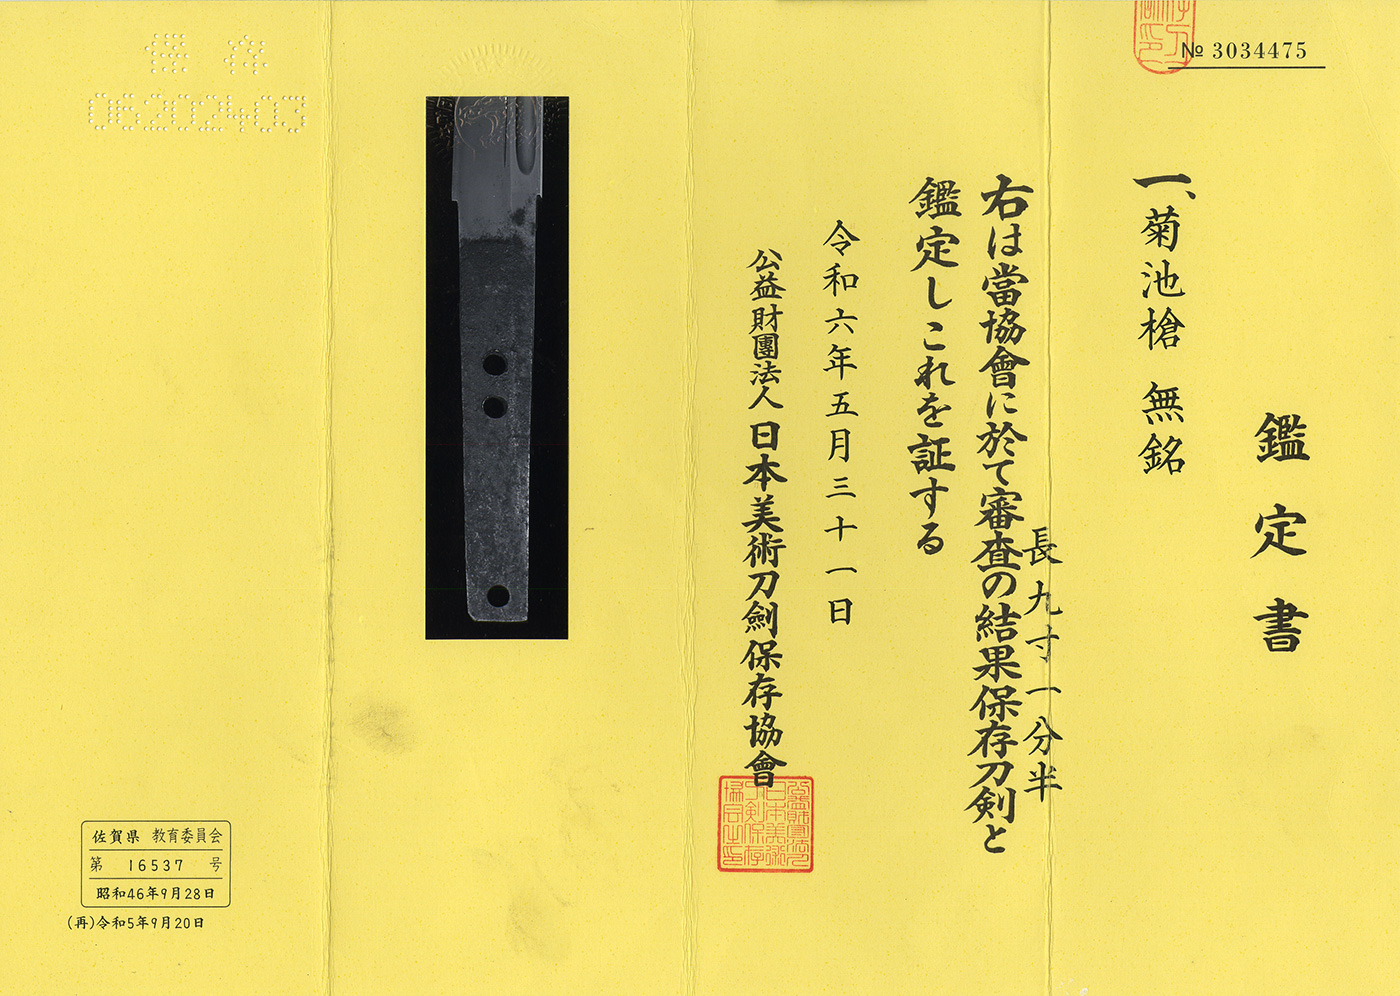 № 3034475
鑑定書
一、菊池槍 無銘
長九寸一分半
右は當協會に於て審査の結果保存刀剣と
鑑定しこれを証する
令和六年五月三十一日
公益財團法人日本美術刀劍保存協會
保存
06202403
佐賀県 教育委員会
第 16537 号
昭和46年9月28日
(再)令和5年9月20日